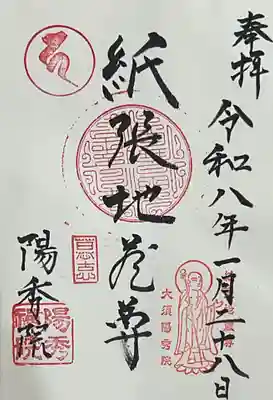 奉拝
令和八年一月二十八日
紙張地蔵尊
陽秀院
大須陽秀院